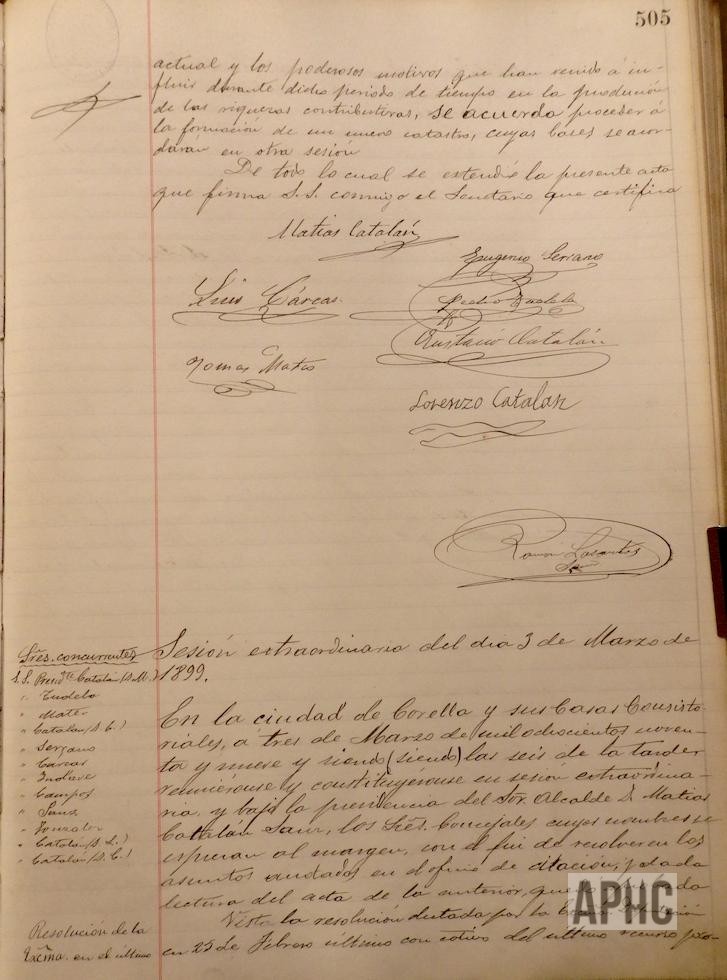 505
actual y los poderosos motivos que han venido á in-
fluir durante dicho periodo de tiempo en la producción
de las riquezas contributivas, se acuerda proceder á
la formación de un nuevo catastro, cuyas bases se acor-
darán en otra sesión
De todo lo cual se extendió la presente acta
que firma S.S. conmigo el Secretario que certifica
Matias Catalán
Epugenio Serrano
Luis Cárcas
Pedro Tudela
Eustasio Catalán
Tomas Mateo
Lorenzo Catalan
Ramón Lasantas
Sres. concurrentes
S.S. Presidte Catalán (D.M.)
" Tudela
" Mateo
" Catalán (D.E.)
" Serrano
" Carcas
" Campos
" Sanz
" Gonzalez
" Catalán (D.L.)
" Catalán (D.C.)
Sesión extraordinaria del dia 3 de Marzo de
1899.
En la ciudad de Corella y sus Casas Consisto-
riales, á tres de Marzo de mil ochocientos noven-
ta y nueve y siendo (siendo) las seis de la tarde
reuniéronse y constituyeronse en sesión extraordina-
ria y bajo la presidencia del Sor. Alcalde D. Matias
Catalán Sanz, los Sres. Concejales cuyos nombres se
expresan al margen, con el fin de resolver en los
asuntos anotados en el oficio de citación, y dada
lectura del acta de la anterior, que
Vista la resolución dictada por la
en 25 de Febrero último con motivo del último recurso pro-
Resolución de la
Excma. en el último
APHC